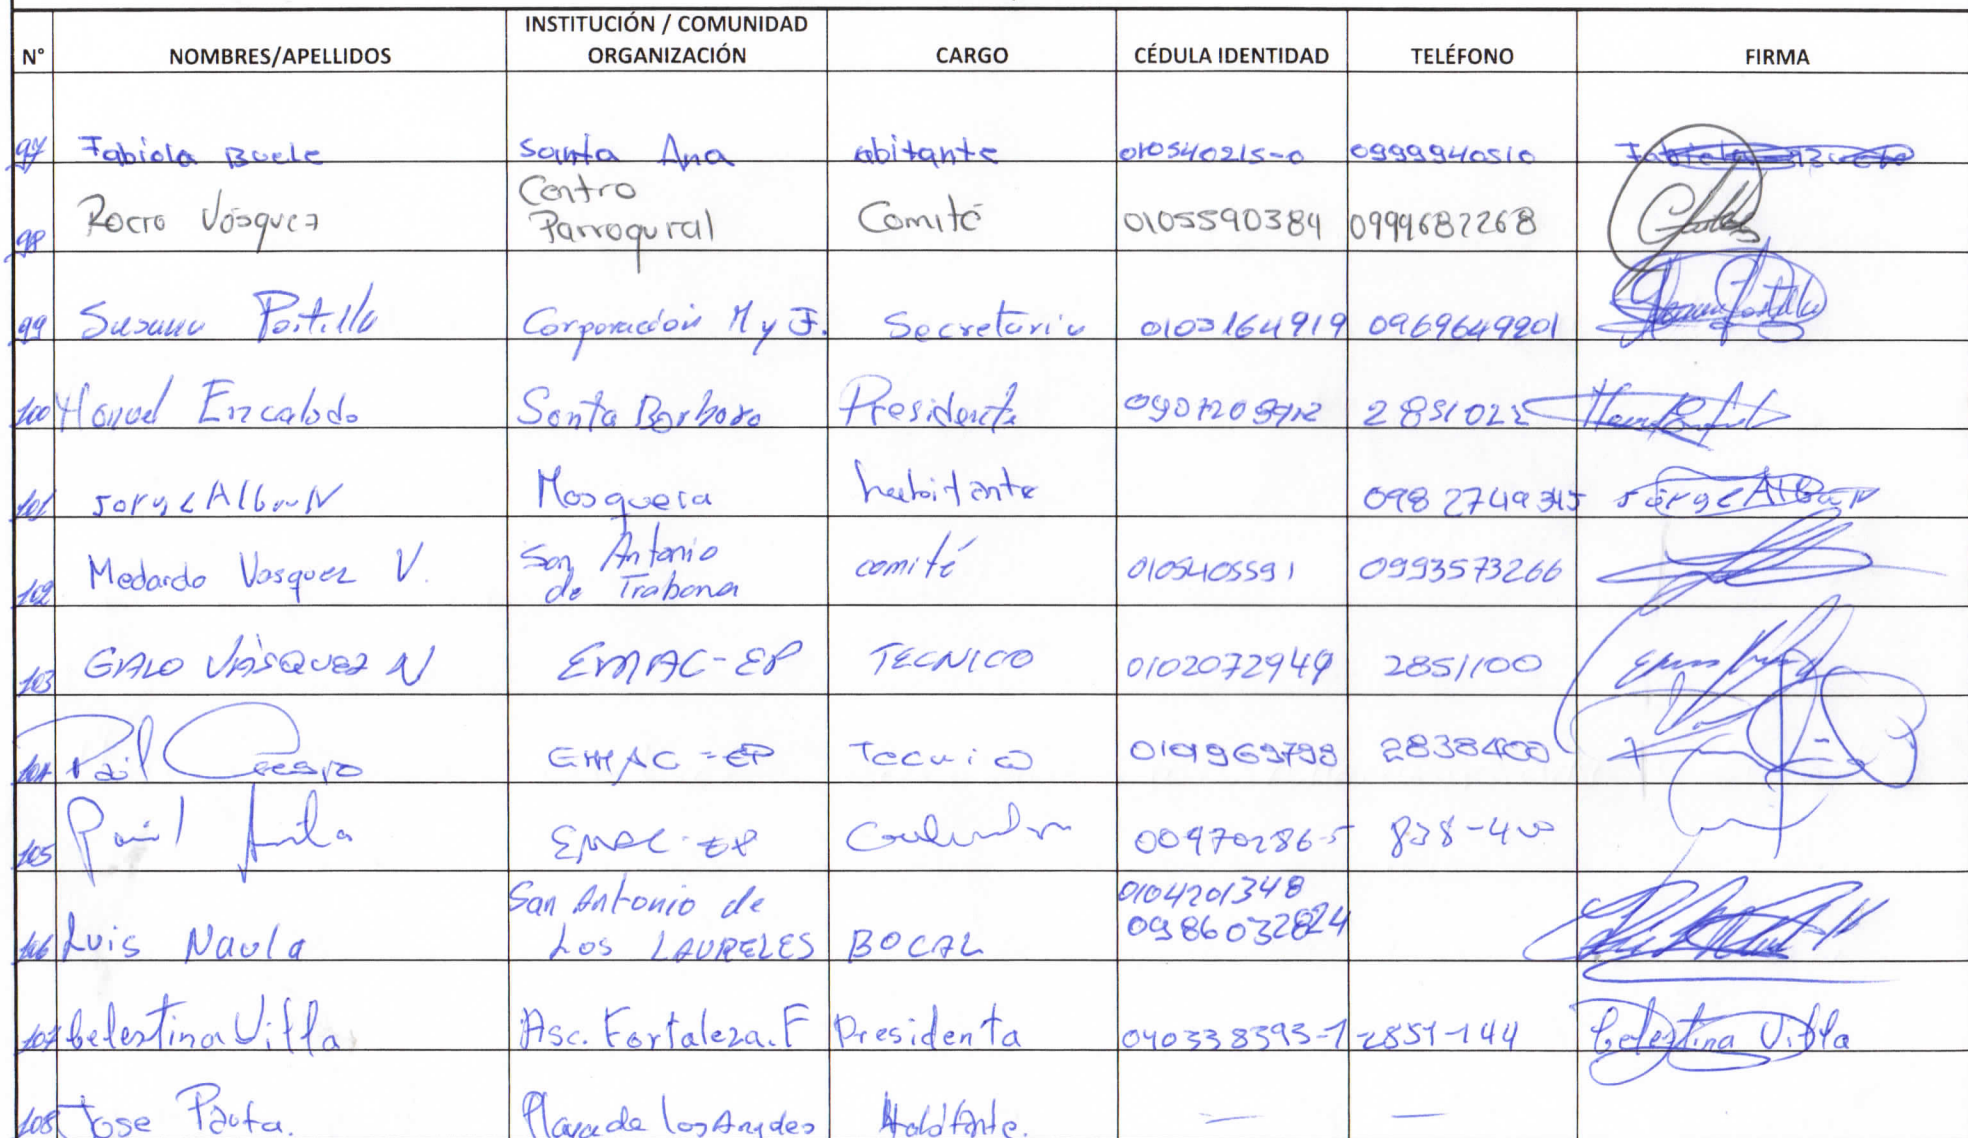 N° NOMBRES/APELLIDOS INSTITUCIÓN / COMUNIDAD ORGANIZACIÓN CARGO CÉDULA IDENTIDAD TELÉFONO FIRMA
97 Fabiola Buele Santa Ana abitante 010540215-0 0999940510 Fabiola Buele
98 Rocio Vásquez Centro Parroquial Comité 0105590384 0999687268
99 Susana Portilla Corporación M y J. Secretaria 0103164919 0969649901
100 Manuel Encalada Santa Barbara Presidente 2851022
101 Jorge Alban N Mosquera habitante 0982749345 Jorge Alban
102 Medardo Vasquez V. San Antonio de Trabana comité 0105405591 0993573266
103 GALO VÁSQUEZ N EMAC-EP TECNICO 0102072949 2851100
104 Paúl Crespo EMAC-EP Tecnico 2838400
105 Paúl EMAC-EP 00970286-5
106 Luis Naula San Antonio de Los LAURELES BOCAL 0104201348 0986032824
107 Celestina Villa Asc. Fortaleza.F Presidenta 040338393-1 2851-144 Celestina Villa
108 Jose Pauta. Playa de los Angeles Habitante. — —